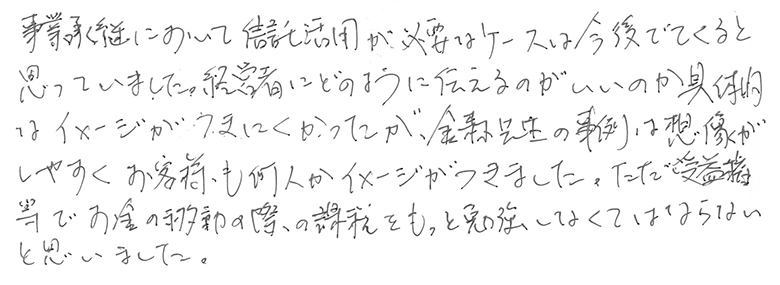 事業承継において信託活用が必要なケースは今後でてくると
思っていました。経営者にどのように伝えるのがいいのか具体的
なイメージがうまにくかったが、金森先生の事例は想像が
しやすくお客様も何人かイメージがつきました。ただ受益権
等でお金の移動の際の課税をもっと勉強しなくてはならない
と思いました。